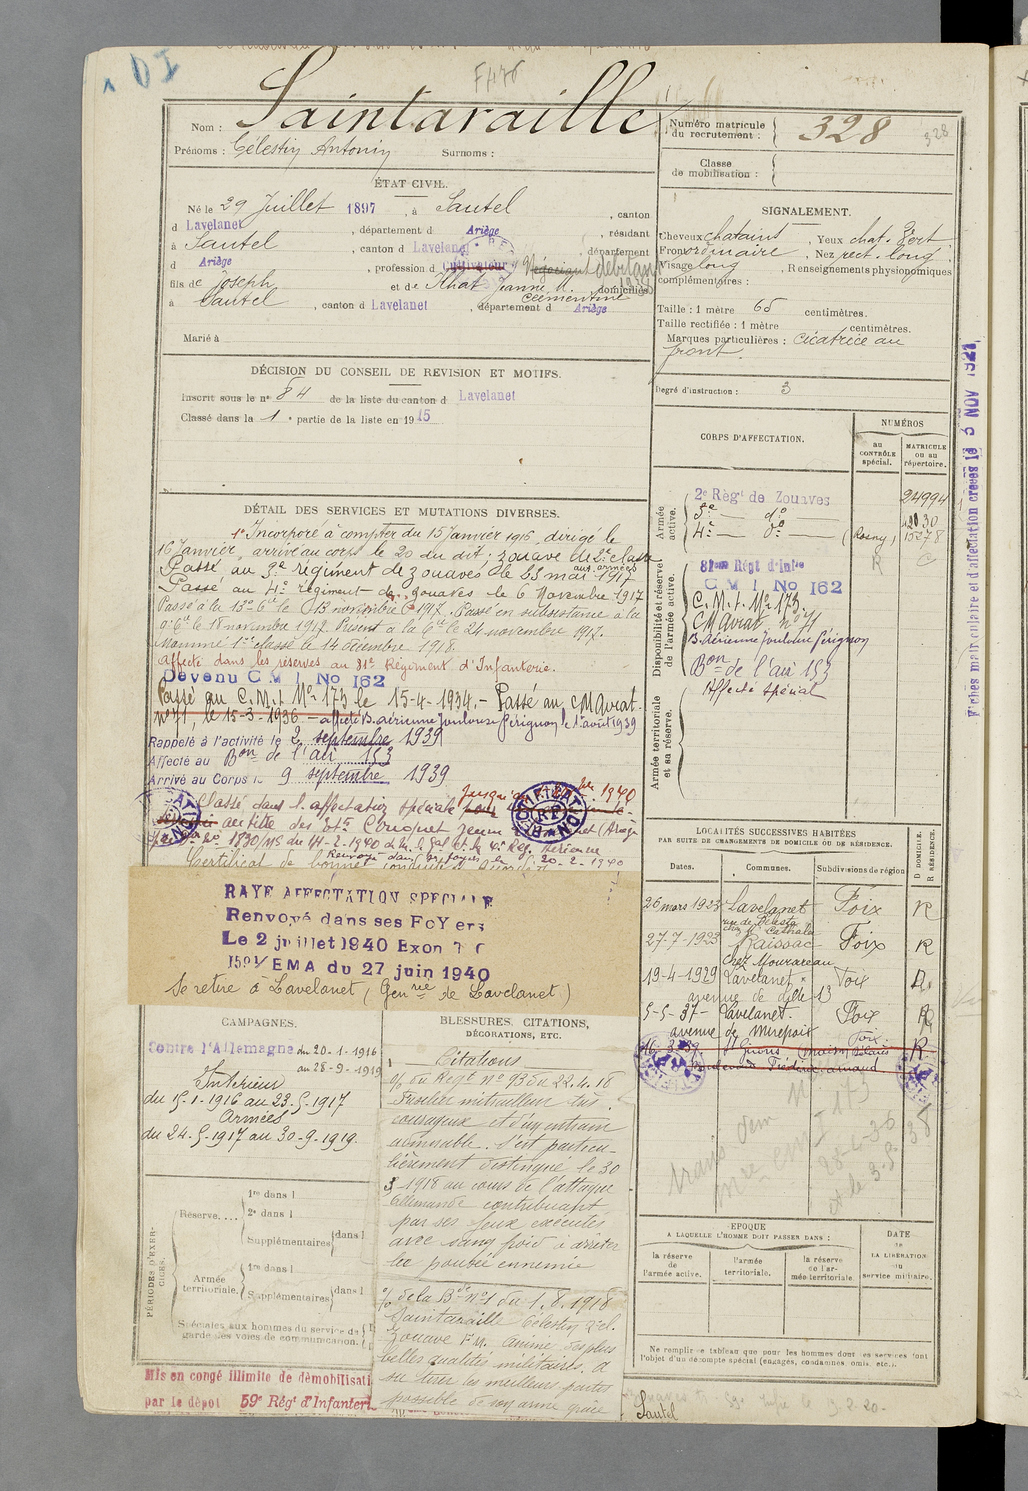 DI
F476
Nom : Saintaraille
Prénoms : Célestin Antonin Surnoms :
Numéro matricule du recrutement : 328
328
Classe de mobilisation :
ÉTAT CIVIL.
Né le 29 Juillet 1897, à Sautel, canton
d Lavelanet, département d Ariège, résidant
à Sautel, canton d Lavelanet, département
d Ariège, profession d cultivateur Négociant débitant
fils de Joseph et de Ilhat Jeanne M. Clémentine domiciliés
à Sautel, canton d Lavelanet, département d Ariège
Marié à
SIGNALEMENT.
Cheveux chatains, Yeux chat. vert
Front ordinaire, Nez rect. long
Visage long, Renseignements physionomiques
complémentaires :
Taille : 1 mètre 65 centimètres.
Taille rectifiée : 1 mètre centimètres.
Marques particulières : cicatrice au
front.
Degré d'instruction : 3
DÉCISION DU CONSEIL DE REVISION ET MOTIFS.
Inscrit sous le n° 84 de la liste du canton d Lavelanet
Classé dans la 1e partie de la liste en 1915
DÉTAIL DES SERVICES ET MUTATIONS DIVERSES.
Incorporé à compter du 15 janvier 1916, dirigé le
16 Janvier, arrivé au corps le 20 du dit; zouave de 2e classe
Passé au 3e régiment de zouaves aux armées le 23 mai 1917
Passé au 4e régiment de zouaves le 6 Novembre 1917
Passé à la 13e Cie le 13 novembre 1917. Passé en subsistance à la
Cie le 18 novembre 1917. Présent à la 6e Cie le 24 novembre 1917.
Nommé 1ère classe le 14 décembre 1918.
Affecté dans les réserves au 81e Régiment d'Infanterie.
Devenu C M I No 162
Passé au C.M.I. No 173 le 15-4-1934. - Passé au CM Aviat.
no 71, le 15-3-1936 - affecté B. aérienne Toulouse Pérignon le 1er août 1939
Rappelé à l'activité le 2 septembre 1939
Affecté au Bon de l'air 153
Arrivé au Corps le 9 septembre 1939
Classé dans l'affectation spéciale
au titre des Ets
Certificat de bonne conduite accordé
RAYE AFFECTATION SPECIALE
Renvoyé dans ses FoYers
Le 2 juillet 1940 Exon
1501/EMA du 27 juin 1940
Se retire à Lavelanet (Genrie de Lavelanet)
CORPS D'AFFECTATION.
NUMÉROS
au CONTRÔLE spécial.
MATRICULE ou au répertoire.
Armée active.
2e Régt de Zouaves 24994
3e — do —
4e — do — (Rosny) 15278
Disponibilité et réserve de l'armée active.
81ème Régt d'Infie
C M I No 162
C.M.I. No 173.
CM Aviat. no 71
B. Aérienne Toulouse Pérignon
Bon de l'air 153
Affecté spécial
Armée territoriale et sa réserve.
Fiches matriculaire et d'affectation créées le 5 NOV 1921
LOCALITÉS SUCCESSIVES HABITÉES
PAR SUITE DE CHANGEMENTS DE DOMICILE OU DE RÉSIDENCE.
Dates. Communes. Subdivisions de région D DOMICILE. R RÉSIDENCE.
26 mars 1923 Lavelanet Foix R
27-7-1923 Raissac Foix R
chez Mourareau
19-4-1929 Lavelanet Foix D.
avenue de ville 13
5-5-37- Lavelanet. Foix R
avenue de Mirepoix
16-3-39. St Girons Foix R
CAMPAGNES.
Contre l'Allemagne du 20-1-1916
au 28-9-1919
Intérieur
du 15-1-1916 au 23-5-1917
Armées
du 24-5-1917 au 30-9-1919.
BLESSURES, CITATIONS,
DÉCORATIONS, ETC.
Citations
O/ du Régt No 93 du 22.4.18
Fusilier mitrailleur très
courageux et d'un entrain
admirable. S'est particu-
lièrement distingué le 30
3 1918 au cours de l'attaque
allemande contribuant
par ses feux exécutés
avec sang froid à arrêter
la poussée ennemie
O/ de la Bde no 1 du 1.8.1918
Saintaraille Célestin
Zouave F.M. animé des plus
belles qualités militaires. a
su tirer les meilleurs partis
possible de son arme grâce
PÉRIODES D'EXERCICES.
Réserve....
1re dans l
2e dans l
Supplémentaires dans l
Armée territoriale.
1re dans l
Supplémentaires dans l
Spéciales aux hommes du service de garde des voies de communication.
Mis en congé illimité de démobilisati
par le dépôt 59e Régt d'Infanterie
ÉPOQUE
A LAQUELLE L'HOMME DOIT PASSER DANS :
la réserve de l'armée active.
l'armée territoriale.
la réserve de l'armée territoriale.
DATE de LA LIBÉRATION du service militaire.
Ne remplir ce tableau que pour les hommes dont les services font
l'objet d'un décompte spécial (engagés, condamnés, omis, etc.).
Sautel